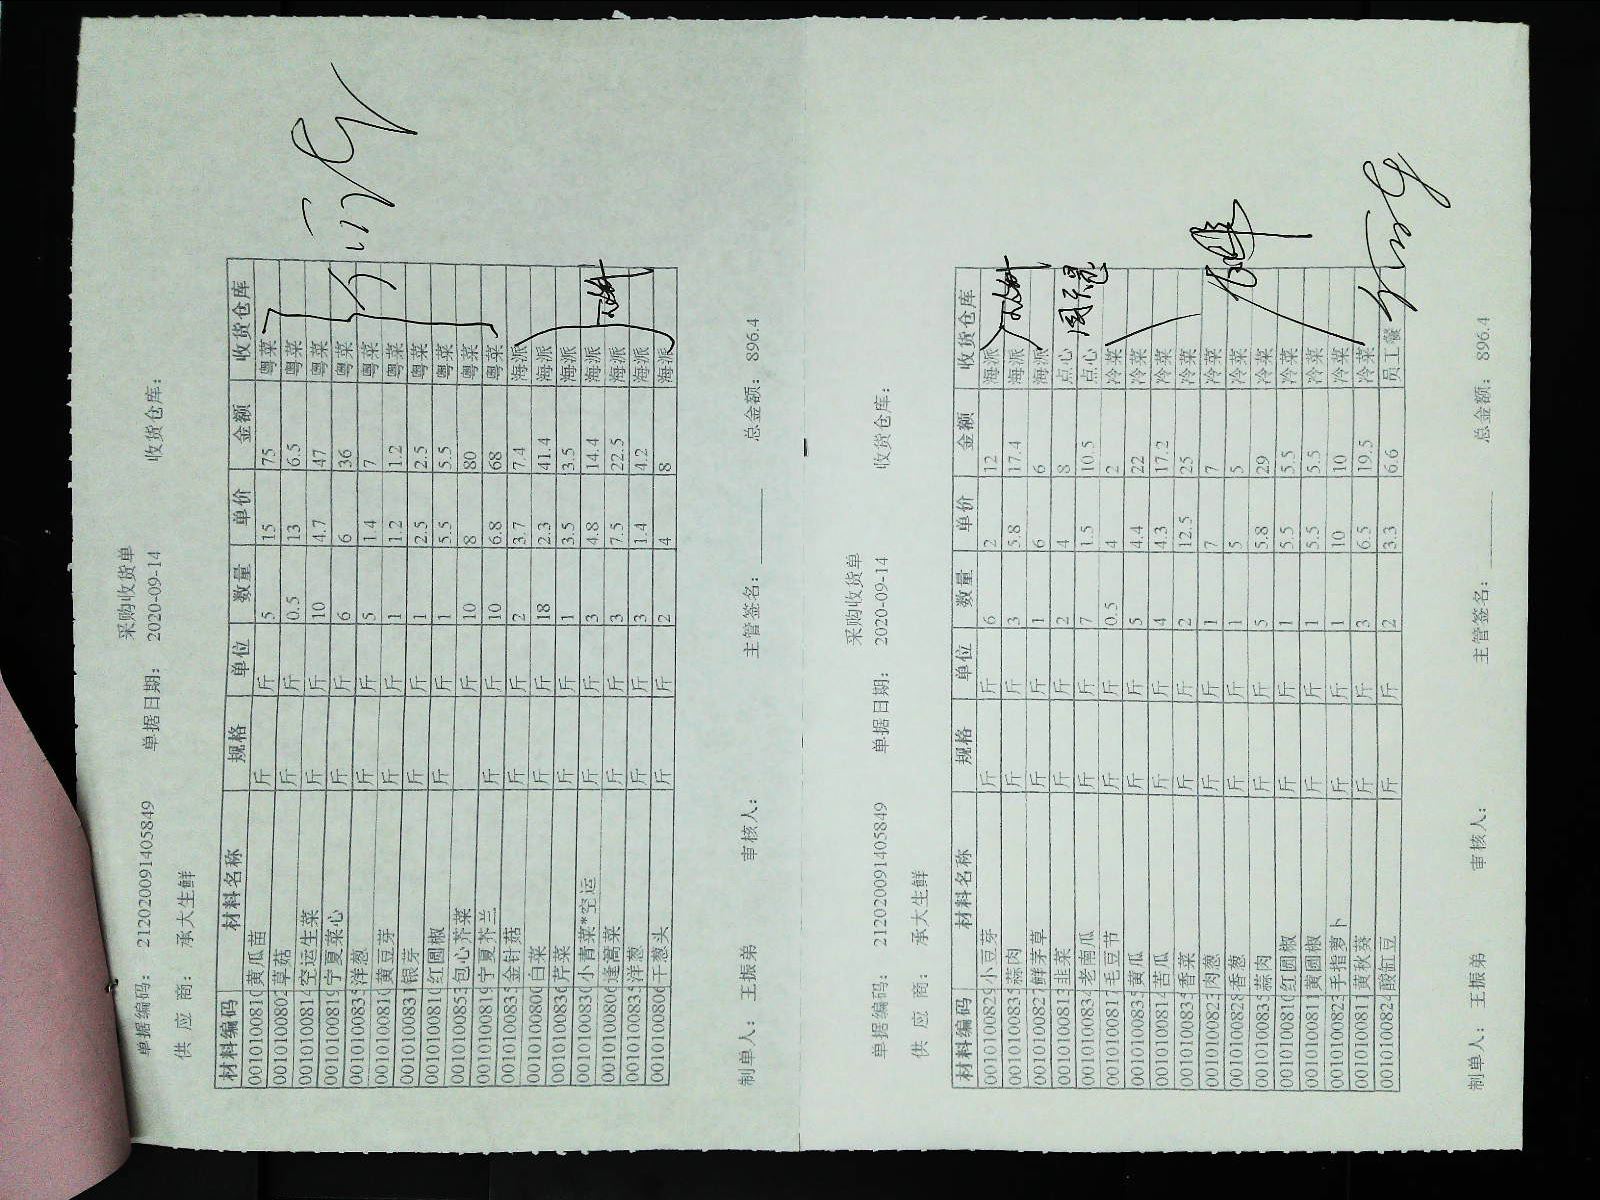 采购收货单
单据编码: 2120200091405849 单据日期: 2020-09-14 收货仓库:
供 应 商: 承大生鲜
材料编码 材料名称 规格 单位 数量 单价 金额 收货仓库
001010081 黄瓜苗 斤 斤 5 15 75 粤菜
001010080 草菇 斤 斤 0.5 13 6.5 粤菜
001010081 空运生菜 斤 斤 10 4.7 47 粤菜
001010081 宁夏菜心 斤 斤 6 6 36 粤菜
001010083 洋葱 斤 斤 5 1.4 7 粤菜
001010081 黄豆芽 斤 斤 1 1.2 1.2 粤菜
001010083 银芽 斤 斤 1 2.5 2.5 粤菜
001010081 红圆椒 斤 斤 1 5.5 5.5 粤菜
001010085 包心芥菜 斤 10 8 80 粤菜
001010081 宁夏芥兰 斤 斤 10 6.8 68 粤菜
001010083 金针菇 斤 斤 2 3.7 7.4 海派
001010080 白菜 斤 斤 18 2.3 41.4 海派
001010083 芹菜 斤 斤 1 3.5 3.5 海派
001010083 小青菜*空运 斤 斤 3 4.8 14.4 海派
001010080 蓬蒿菜 斤 斤 3 7.5 22.5 海派
001010083 洋葱 斤 斤 3 1.4 4.2 海派
001010080 干葱头 斤 斤 2 4 8 海派
制单人: 王振弟 审核人: 主管签名: 总金额: 896.4
采购收货单
单据编码: 2120200091405849 单据日期: 2020-09-14 收货仓库:
供 应 商: 承大生鲜
材料编码 材料名称 规格 单位 数量 单价 金额 收货仓库
001010082 小豆芽 斤 斤 6 2 12 海派
001010083 蒜肉 斤 斤 3 5.8 17.4 海派
001010082 鲜茅草 斤 斤 1 6 6 海派
001010081 韭菜 斤 斤 2 4 8 点心
001010083 老南瓜 斤 斤 7 1.5 10.5 点心
001010081 毛豆节 斤 斤 0.5 4 2 冷菜
001010083 黄瓜 斤 斤 5 4.4 22 冷菜
001010081 苦瓜 斤 斤 4 4.3 17.2 冷菜
001010083 香菜 斤 斤 2 12.5 25 冷菜
001010082 肉葱 斤 斤 1 7 7 冷菜
001010082 香葱 斤 斤 1 5 5 冷菜
001010083 蒜肉 斤 斤 5 5.8 29 冷菜
001010081 红圆椒 斤 斤 1 5.5 5.5 冷菜
001010081 黄圆椒 斤 斤 1 5.5 5.5 冷菜
001010082 手指萝卜 斤 斤 1 10 10 冷菜
001010081 黄秋葵 斤 斤 3 6.5 19.5 冷菜
001010082 酸缸豆 斤 斤 2 3.3 6.6 员工餐
制单人: 王振弟 审核人: 主管签名: 总金额: 896.4